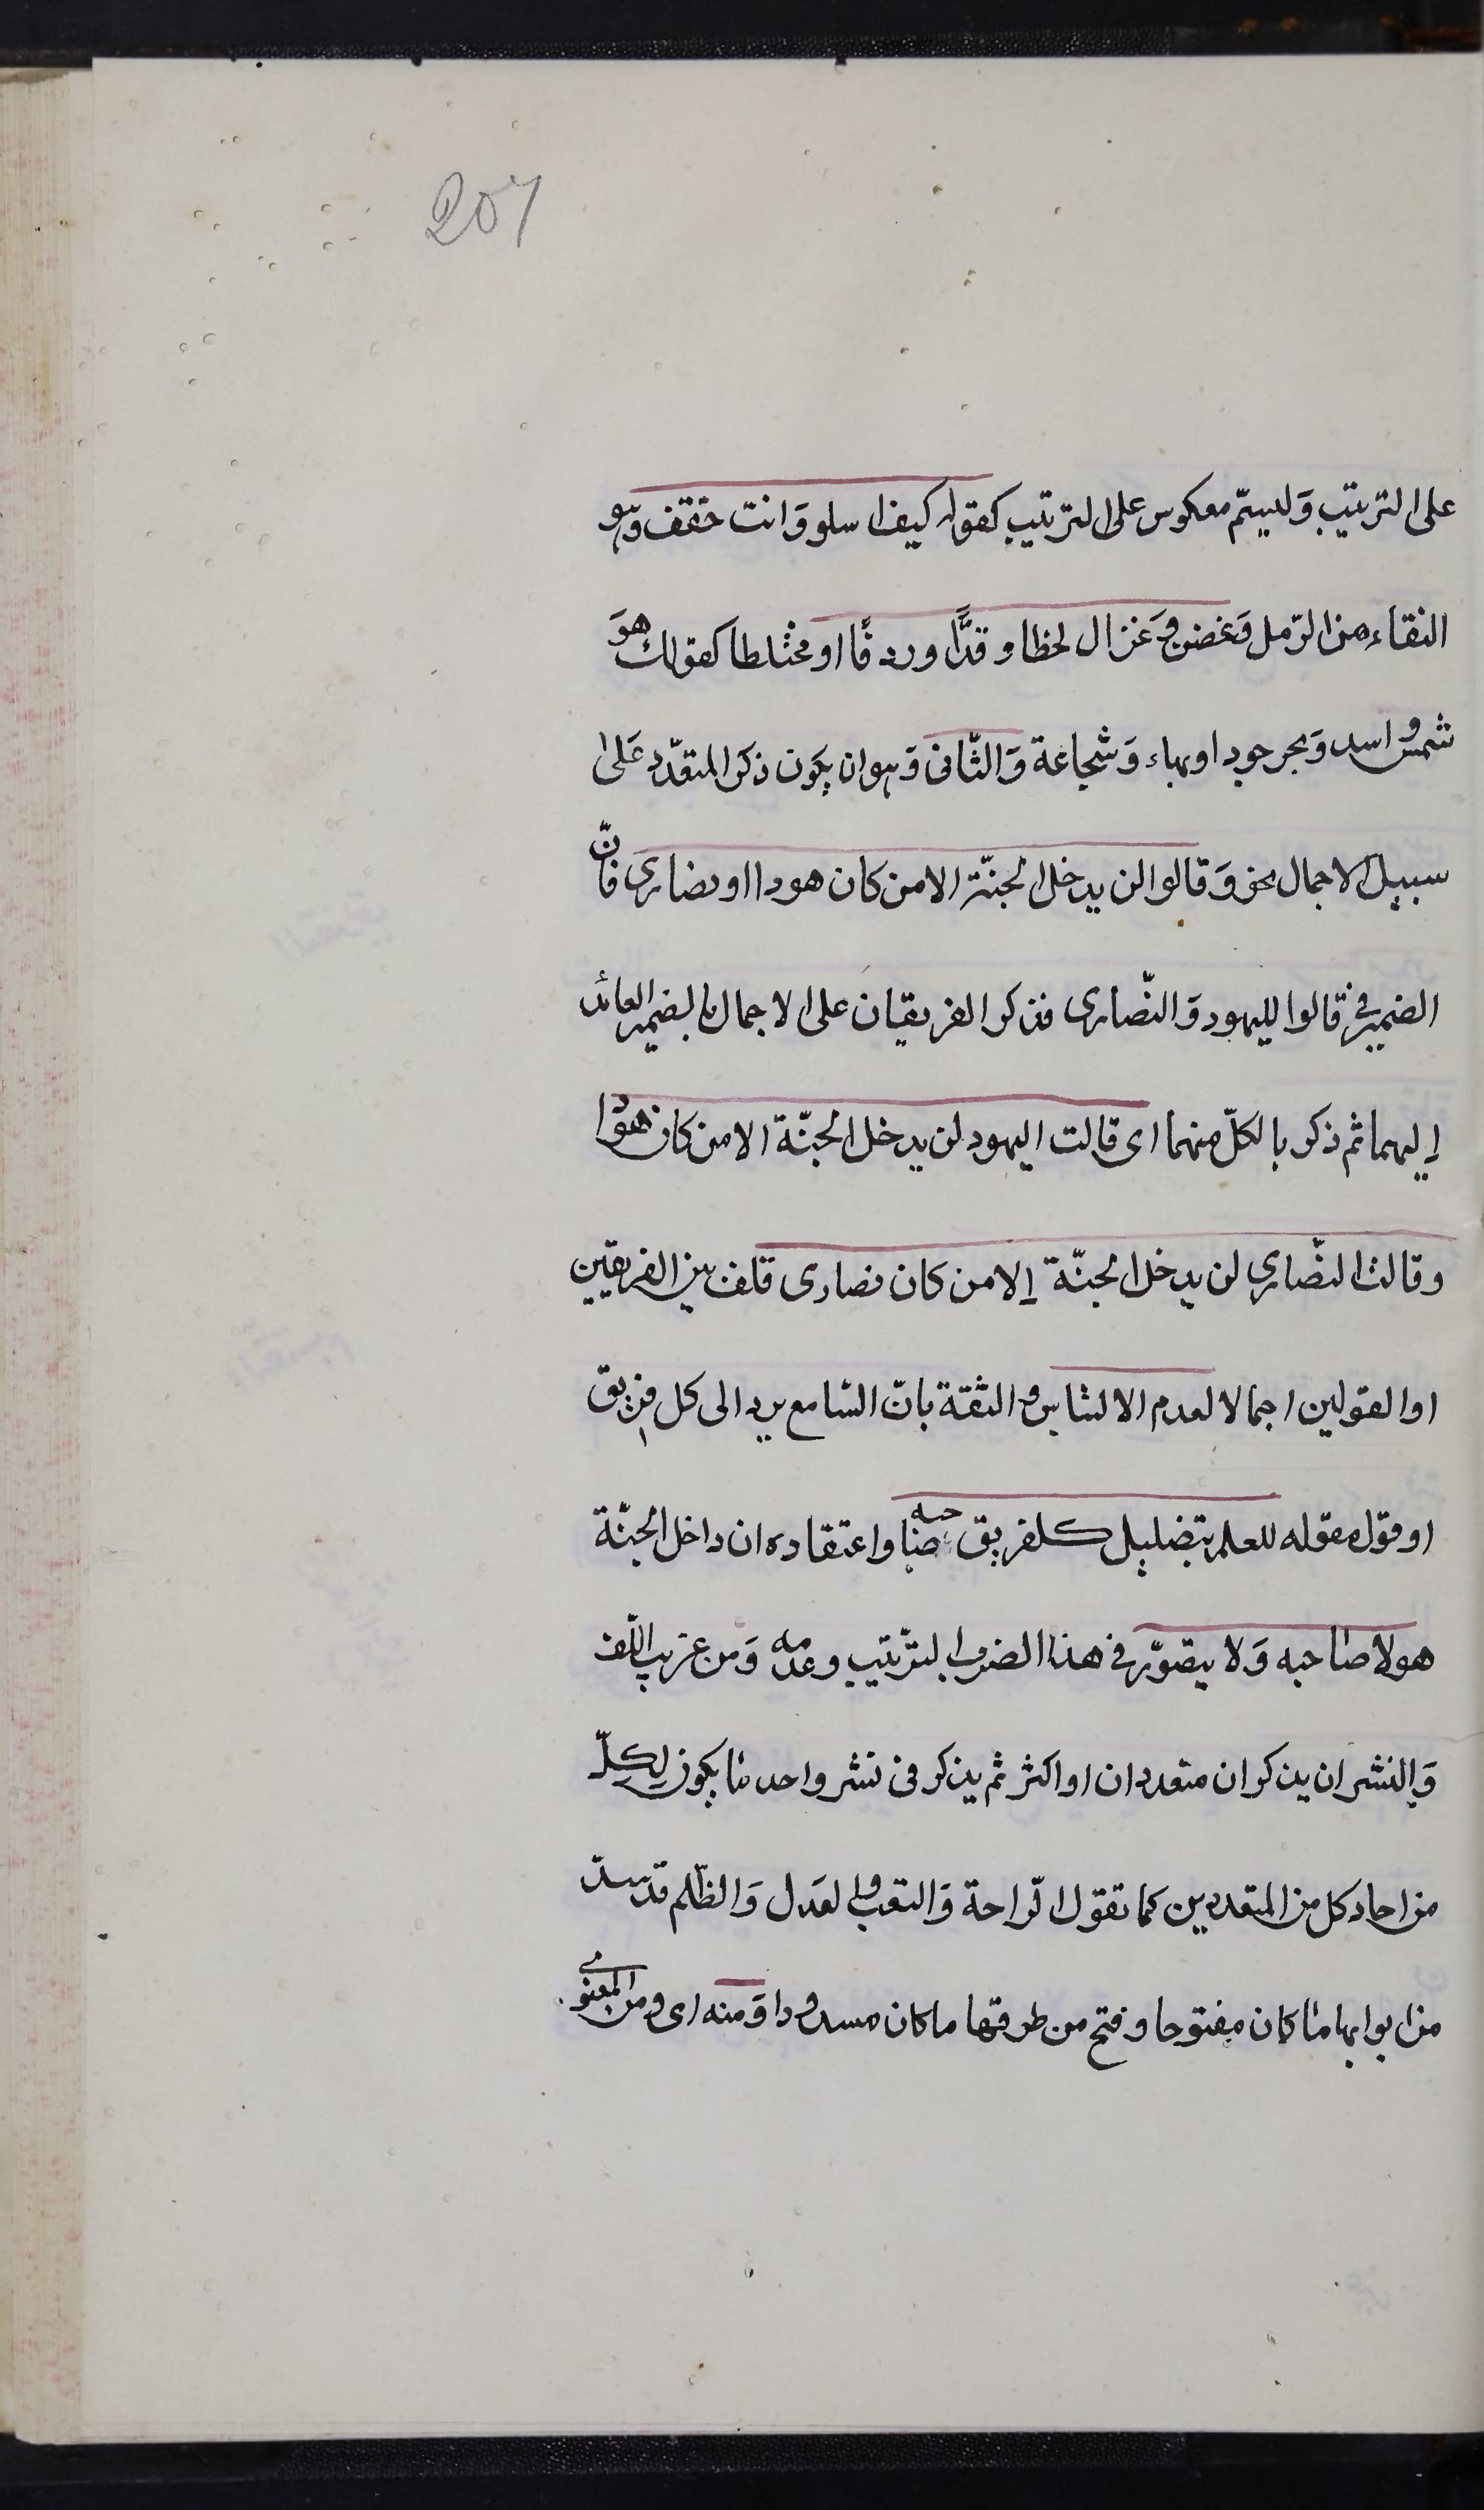 207
على الترتيب وَليسمّ معكوس على الترتيب كقوله كيف اسلو وَانت حقف وهو
النقاء من الرّمل وَغصن وَغزال لحظا وقدًّا وردفًا او مختلطا كقولك هوَ
شمس و اسد وَبحر جودا وبهاء وَشجاعة وَالثّانى وَهو ان يكون ذكر المتعدّد عَلى
سبيل الاجمال نحو وَقالوا لن يدخل الجنّة الا من كان هودا او نصارى فانّ
الضمير فى قالوا لليهود وَالنّصارى فذكر الفريقان على الاجمال بالضمير العائد
إليهما ثم ذكر بالكلّ منهما اى قالت اليهود لن يدخل الجنّة الا من كان هودا
وقالت النّصارى لن يدخل الجنّة إلا من كان نصارى فلف بين الفريقين
او القولين اجمالا لعدم الالتباس و الثقة بانّ السّامع يرد الى كل فريق
او قول مقوله للعلم بتضليل كلفريق صاحبه واعتقاده ان داخل الجنّة
هو لا صاحبه وَلا يتصوّر فى هذا الضرب الترّتيب وعدمه وَمن غريب اللّف
وَالنشر ان يذكر ان متعددان او اكثر ثم يذكر فى نشر واحد ما يكون لكلّ
من احاد كل من المتعددين كما تقول الرّاحة وَالتعب و العَدل وَالظّلم قد سدّ
من ابوابها ما كان مفتوحا وفتح من طرقها ما كان مسدودا وَمنه اى ومن المعنوى